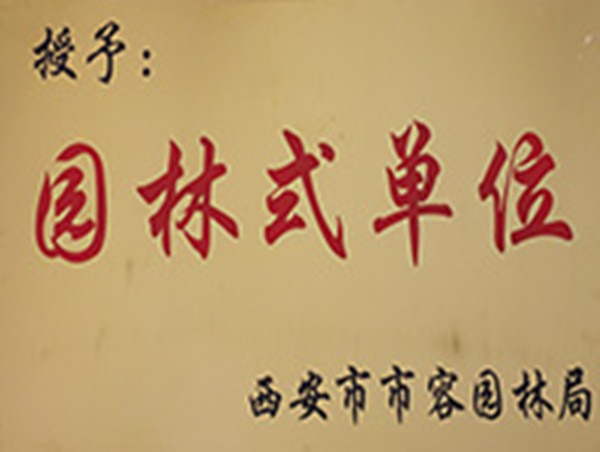 授予：
园林式单位
西安市市容园林局